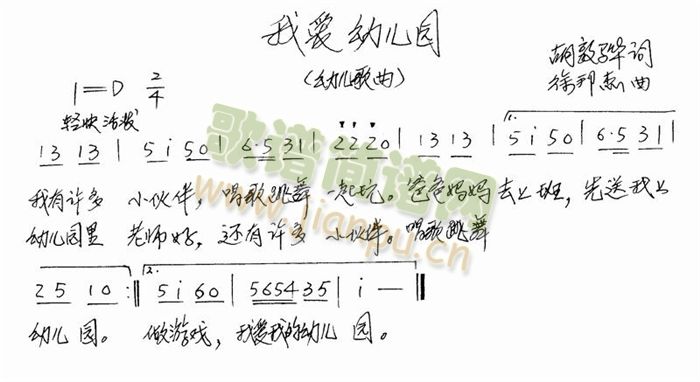 我爱幼儿园
(幼儿歌曲)
胡敦骅词
徐邦杰曲
1=D 2/4
轻快活泼
13 13 | 5 i 50 | 6·5 31 | 2220 | 13 13 | 1. 5 i 50 | 6·5 31 |
我有许多 小伙伴, 唱歌跳舞 一起玩。爸爸妈妈去上班, 先送我上
幼儿园里 老师好, 还有许多 小伙伴。唱歌跳舞
25 10 :|| 2. 5 i 60 | 5654 35 | i — ||
幼儿园。 做游戏, 我爱我的幼儿 园。
歌谱简谱网
www.jianpu.cn